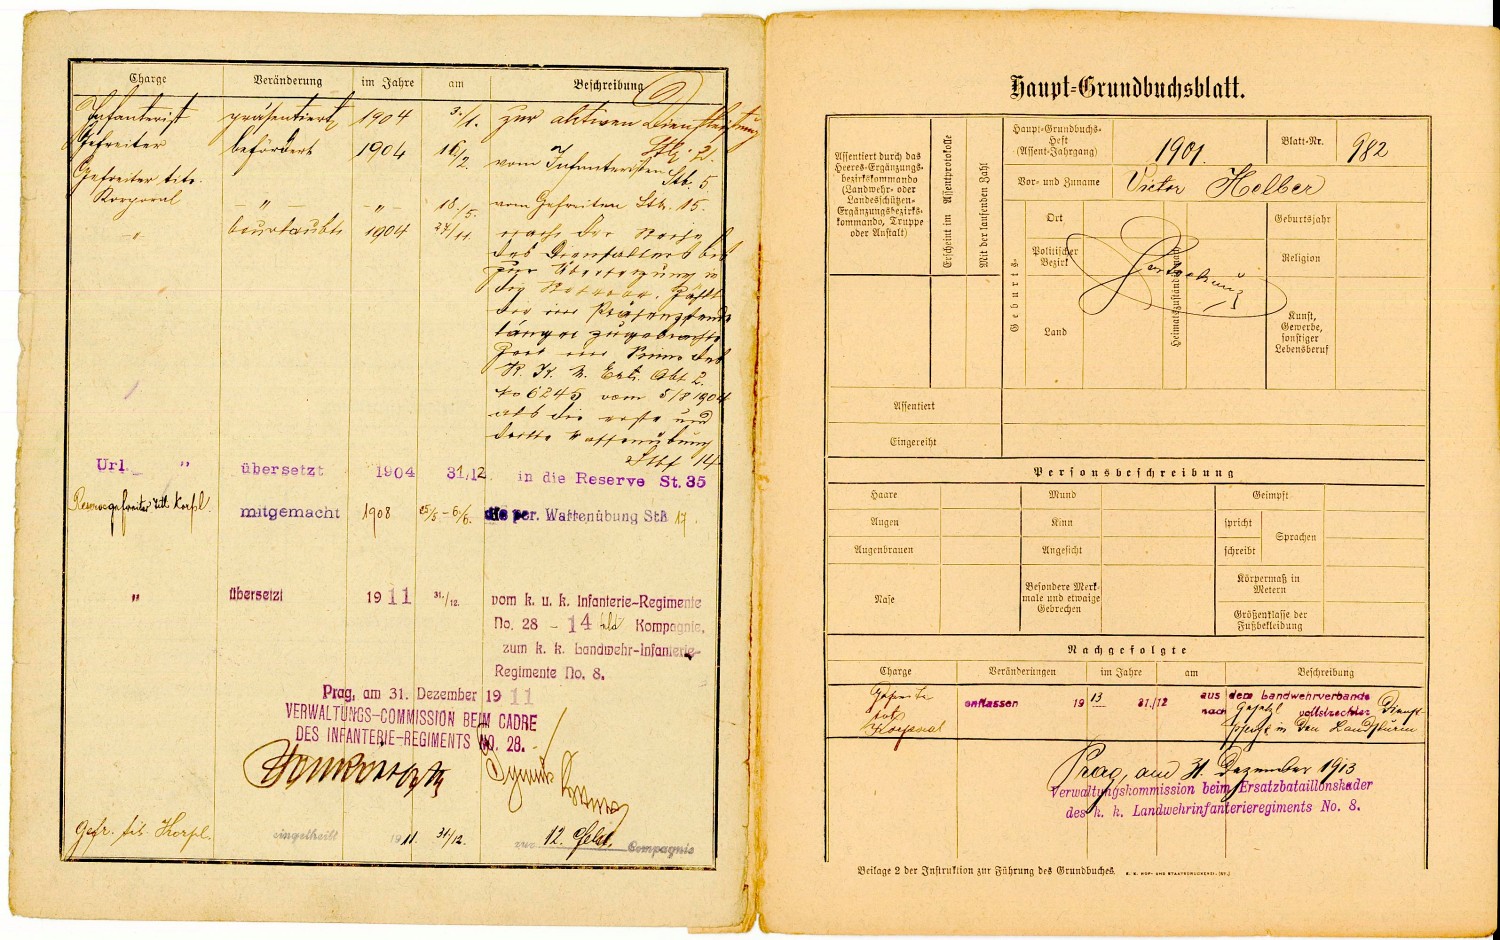 Charge Veränderung im Jahre am Beschreibung
Infanterist präsentiert 1904 3./1. zur aktiven Dienstleistung
Stb. 2.
Gefreiter befördert 1904 16/2 vom Infanteristen
Stb. 5
Gefreiter tit.
Korporal " " 18./5. vom Gefreiten Stb. 15.
" beurlaubt 1904 24/11. nach der Reihe
des Dienstalters bis
zur Übersetzung in
die Reserve.
die im Präsenzstande
länger zugebrachte
Zeit im Sinne des
R. K. M. Erl. Abt 2.
No 6245 vom 5/8 1904
als die erste und
dritte Waffenübung
Stbf 14
Url. " übersetzt 1904 31/12. in die Reserve St. 35
Reservegefreiter titl. Korpl. mitgemacht 1908 25/5 - 6/6. die per. Waffenübung Stb 17.
" übersetzt 1911 31./12. vom k. u. k. Infanterie-Regimente
No. 28 - 14 Feld Kompagnie,
zum k. k. Landwehr-Infanterie-
Regimente No. 8.
Prag, am 31. Dezember 1911
VERWALTUNGS-COMMISSION BEIM CADRE
DES INFANTERIE-REGIMENTS NO. 28.
Gefr. tit. Korpl. eingetheilt 1911. 31/12. zur 12. Feld. Compagnie
Haupt-Grundbuchsblatt.
Assentiert durch das
Heeres-Ergänzungs-
bezirkskommando
(Landwehr- oder
Landesschützen-
Ergänzungsbezirks-
kommando, Truppe
oder Anstalt)
Erscheint im Assentprotokolle
Mit der laufenden Zahl
Haupt-Grundbuchs-
Heft
(Assent-Jahrgang)
1901.
Blatt-Nr. 982
Vor- und Zuname Victor Helber
Geburts-
Ort
Politischer
Bezirk
Land
Heimatszuständigkeit
Fortsetzung
Geburtsjahr
Religion
Kunst,
Gewerbe,
sonstiger
Lebensberuf
Assentiert
Eingereiht
Personsbeschreibung
Haare Mund Geimpft
Augen Kinn spricht Sprachen
Augenbrauen Angesicht schreibt
Nase Besondere Merk-
male und etwaige
Gebrechen
Körpermaß in
Metern
Größenklasse der
Fußbekleidung
Nachgefolgte
Charge Veränderungen im Jahre am Beschreibung
Gefreiter
tit.
Korporal
entlassen 1913 31./12 aus dem Landwehrverbande
nach Gesetzl vollstreckter Dienst-
pflicht in den Landsturm
Prag, am 31. Dezember 1913
Verwaltungskommission beim Ersatzbataillonskader
des k. k. Landwehrinfanterieregiments No. 8.
Beilage 2 der Instruktion zur Führung des Grundbuches. K. K. HOF- UND STAATSDRUCKEREI.